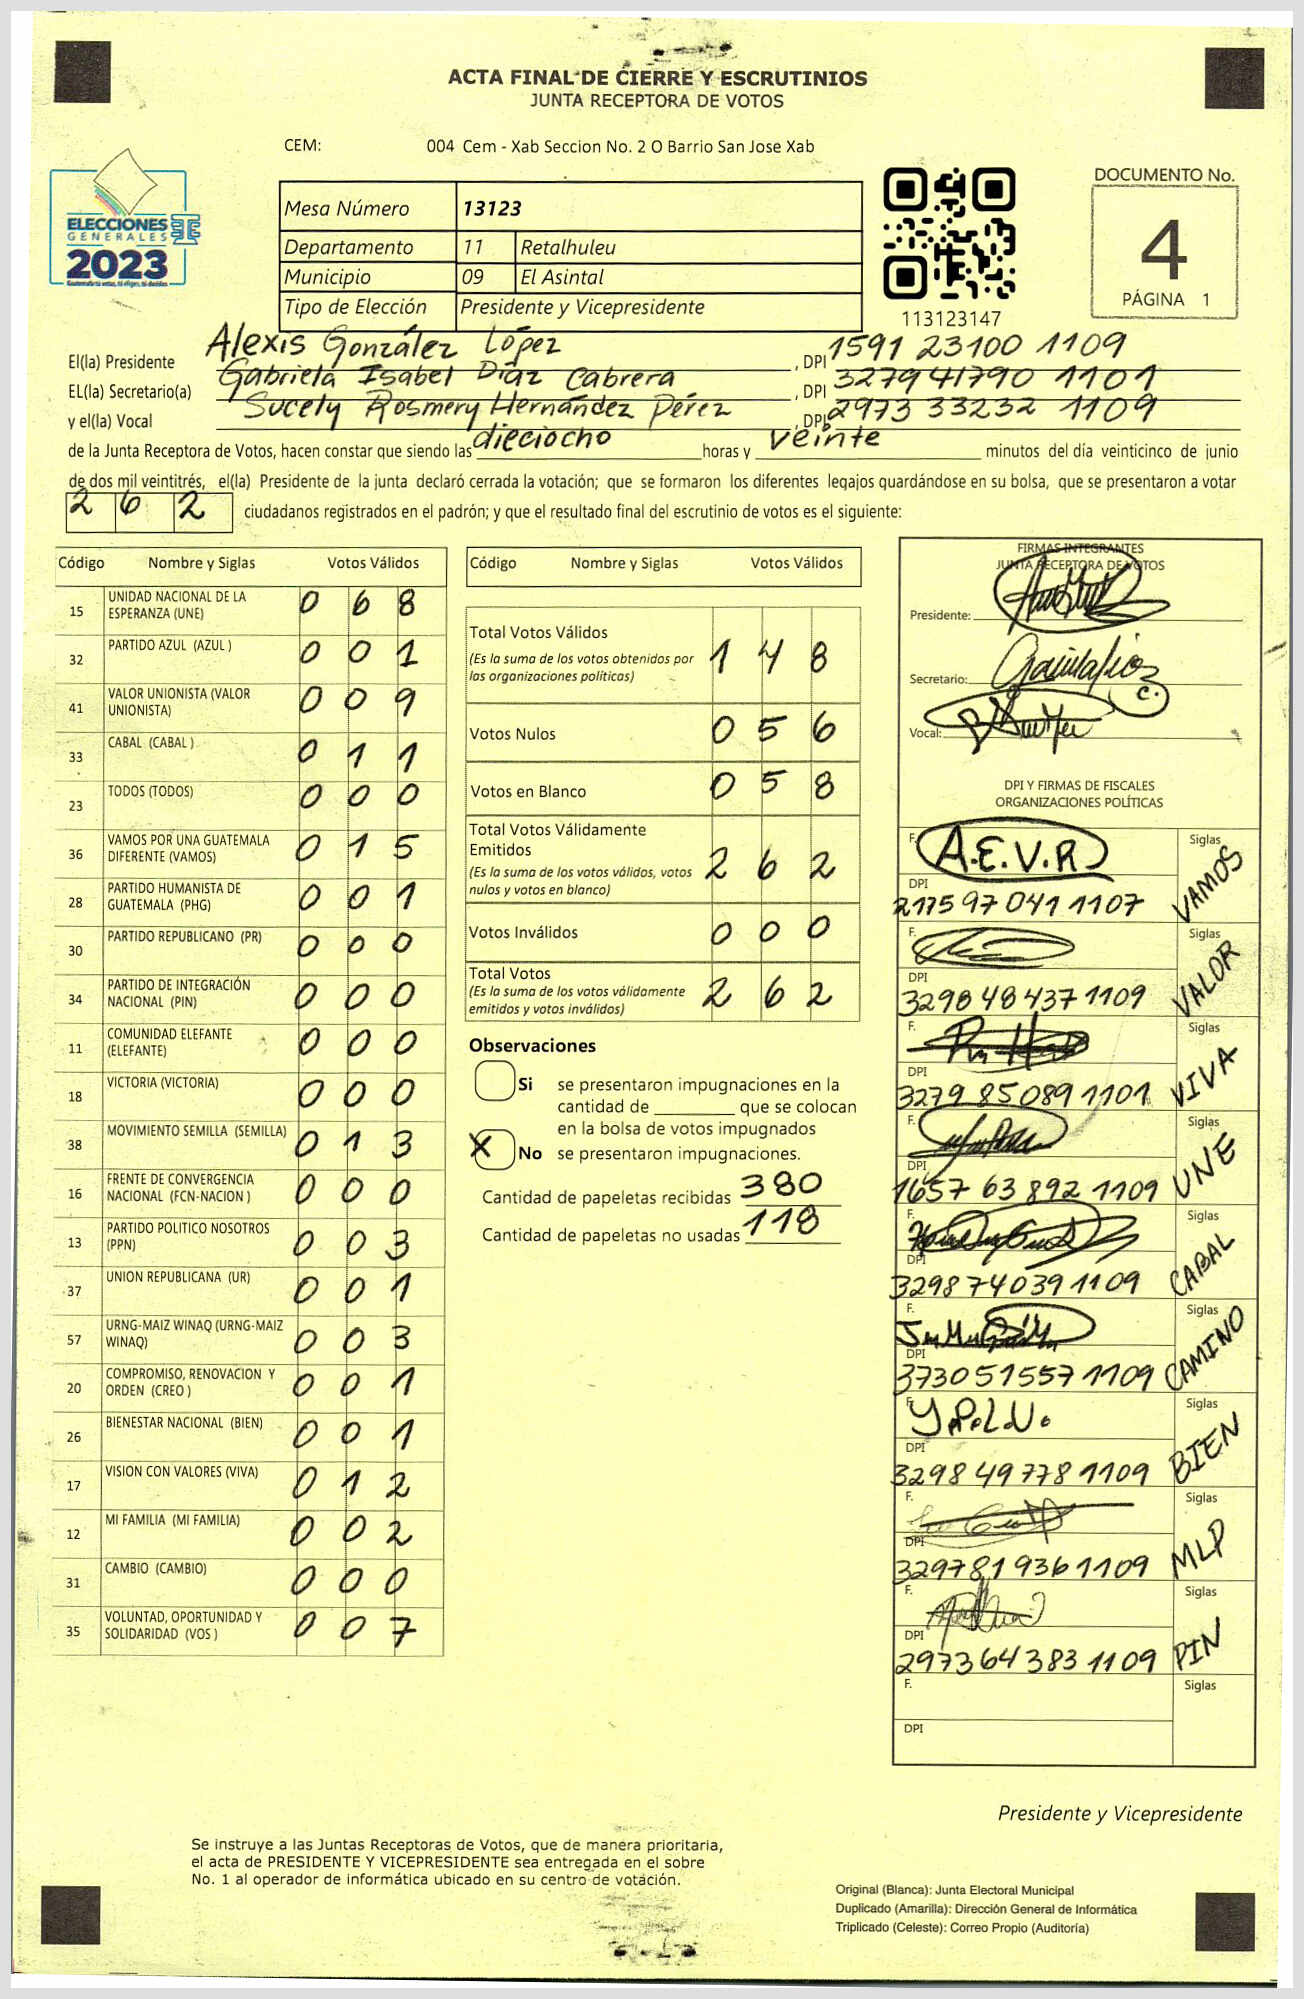 ACTA FINAL DE CIERRE Y ESCRUTINIOS
JUNTA RECEPTORA DE VOTOS
CEM: 004 Cem - Xab Seccion No. 2 O Barrio San Jose Xab
ELECCIONES
GENERALES
2023
Mesa Número 13123
Departamento 11 Retalhuleu
Municipio 09 El Asintal
Tipo de Elección Presidente y Vicepresidente
113123147
DOCUMENTO No.
4
PÁGINA 1
El(la) Presidente Alexis González López , DPI 1591 23100 1109
EL(la) Secretario(a) Gabriela Isabel Díaz Cabrera , DPI 327941790 1101
y el(la) Vocal Sucely Rosmery Hernández Pérez , DPI 2973 33232 1109
de la Junta Receptora de Votos, hacen constar que siendo las dieciocho horas y veinte minutos del día veinticinco de junio
de dos mil veintitrés, el(la) Presidente de la junta declaró cerrada la votación; que se formaron los diferentes legajos guardándose en su bolsa, que se presentaron a votar
2 6 2 ciudadanos registrados en el padrón; y que el resultado final del escrutinio de votos es el siguiente:
Código Nombre y Siglas Votos Válidos
15 UNIDAD NACIONAL DE LA ESPERANZA (UNE) 0 6 8
32 PARTIDO AZUL (AZUL ) 0 0 1
41 VALOR UNIONISTA (VALOR UNIONISTA) 0 0 9
33 CABAL (CABAL ) 0 1 1
23 TODOS (TODOS) 0 0 0
36 VAMOS POR UNA GUATEMALA DIFERENTE (VAMOS) 0 1 5
28 PARTIDO HUMANISTA DE GUATEMALA (PHG) 0 0 1
30 PARTIDO REPUBLICANO (PR) 0 0 0
34 PARTIDO DE INTEGRACIÓN NACIONAL (PIN) 0 0 0
11 COMUNIDAD ELEFANTE (ELEFANTE) 0 0 0
18 VICTORIA (VICTORIA) 0 0 0
38 MOVIMIENTO SEMILLA (SEMILLA) 0 1 3
16 FRENTE DE CONVERGENCIA NACIONAL (FCN-NACION ) 0 0 0
13 PARTIDO POLITICO NOSOTROS (PPN) 0 0 3
37 UNION REPUBLICANA (UR) 0 0 1
57 URNG-MAIZ WINAQ (URNG-MAIZ WINAQ) 0 0 3
20 COMPROMISO, RENOVACION Y ORDEN (CREO ) 0 0 1
26 BIENESTAR NACIONAL (BIEN) 0 0 1
17 VISION CON VALORES (VIVA) 0 1 2
12 MI FAMILIA (MI FAMILIA) 0 0 2
31 CAMBIO (CAMBIO) 0 0 0
35 VOLUNTAD, OPORTUNIDAD Y SOLIDARIDAD (VOS ) 0 0 7
Código Nombre y Siglas Votos Válidos
Total Votos Válidos 1 4 8
(Es la suma de los votos obtenidos por las organizaciones políticas)
Votos Nulos 0 5 6
Votos en Blanco 0 5 8
Total Votos Válidamente Emitidos 2 6 2
(Es la suma de los votos válidos, votos nulos y votos en blanco)
Votos Inválidos 0 0 0
Total Votos 2 6 2
(Es la suma de los votos válidamente emitidos y votos inválidos)
Observaciones
Si se presentaron impugnaciones en la
cantidad de ________ que se colocan
en la bolsa de votos impugnados
X No se presentaron impugnaciones.
Cantidad de papeletas recibidas 380
Cantidad de papeletas no usadas 118
FIRMAS INTEGRANTES
JUNTA RECEPTORA DE VOTOS
Presidente:
Secretario:
Vocal:
DPI Y FIRMAS DE FISCALES
ORGANIZACIONES POLÍTICAS
F. A.E.V.R Siglas VAMOS
DPI 2175 97 041 1107
F. Siglas VALOR
DPI 3298 48 437 1109
F. Siglas VIVA
DPI 3279 85089 1101
F. Siglas UNE
DPI 1657 63 892 1109
F. Siglas CABAL
DPI 3298 74039 1109
F. Siglas CAMINO
DPI 3730 51557 1109
F. Y.P.L.V. Siglas BIEN
DPI 3298 49778 1109
F. Siglas MLP
DPI 3297819361109
F. Siglas PIN
DPI 2973 64 383 1109
F. Siglas
DPI
Presidente y Vicepresidente
Se instruye a las Juntas Receptoras de Votos, que de manera prioritaria,
el acta de PRESIDENTE Y VICEPRESIDENTE sea entregada en el sobre
No. 1 al operador de informática ubicado en su centro de votación.
Original (Blanca): Junta Electoral Municipal
Duplicado (Amarilla): Dirección General de Informática
Triplicado (Celeste): Correo Propio (Auditoría)